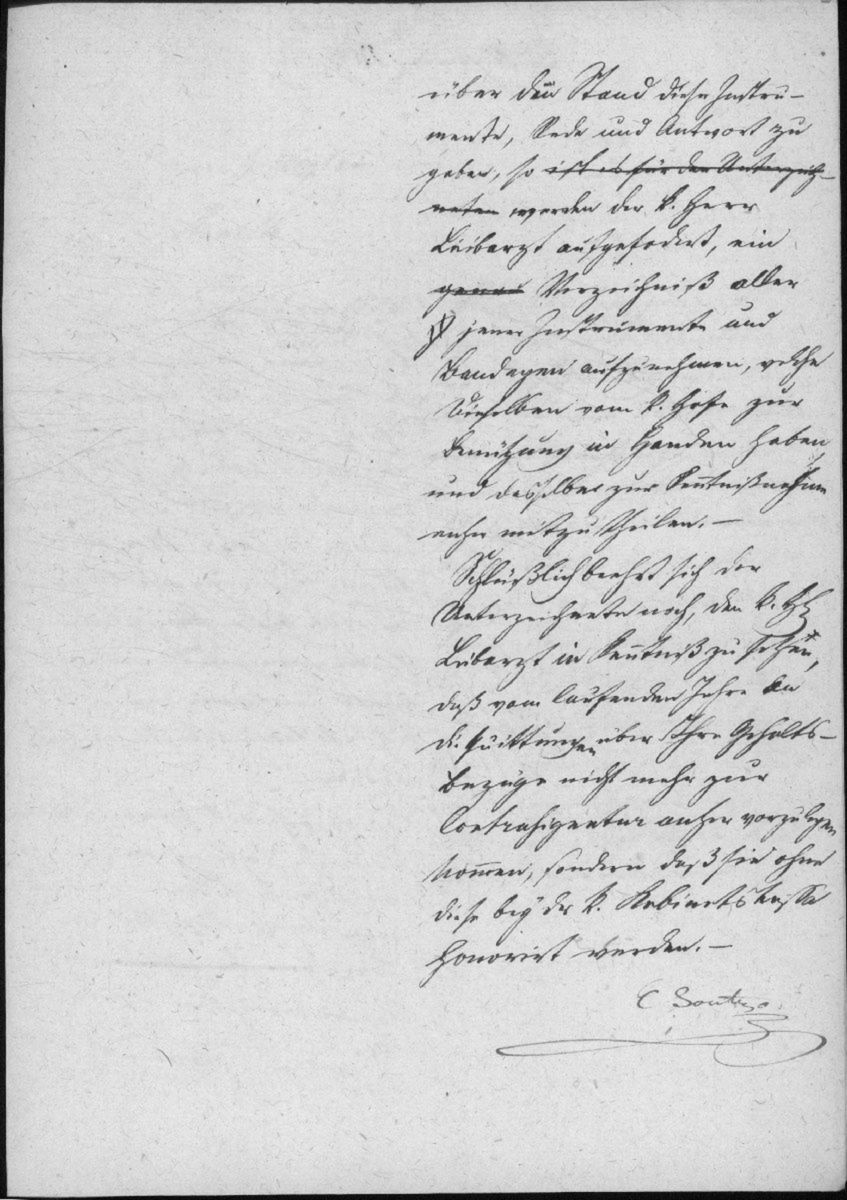 über den Stand dieser Instru-
mente, Rede und Antwort zu
geben, so ist es für den Unterzeich-
neten werden der k. Herr
Leibarzt aufgefodert, ein
genaues Verzeichniß aller
jener Instrumente und
Bandagen aufzunehmen, welche
Dieselben vom k. Hofe zur
Benützung in Handen haben,
und dasselbe zur Kenntnißnahme
anher mitzutheilen. —
Schlüßlich beehrt sich der
Unterzeichnete noch, den k. H.
Leibarzt in Kenntniß zu setzen,
daß vom laufenden Jahre an
die Quittungen über Ihre Gehalts-
bezüge nicht mehr zur
Contrasignatur anher vorzulegen
kommen, sondern daß sie ohne
diese bey der k. Kabinetskasse
honorirt werden. —